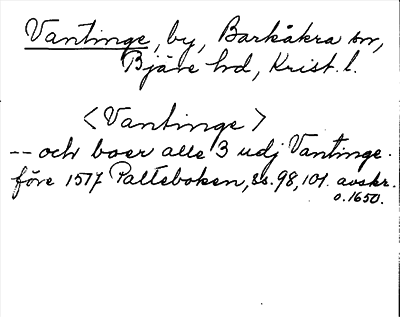 Vantinge, by, Barkåkra sn,
Bjäre hd, Krist. l.
<Vantinge>
-- och boer alle 3 udj Vantinge.
före 1517 Palteboken, ss. 98, 101. avskr.
o. 1650.